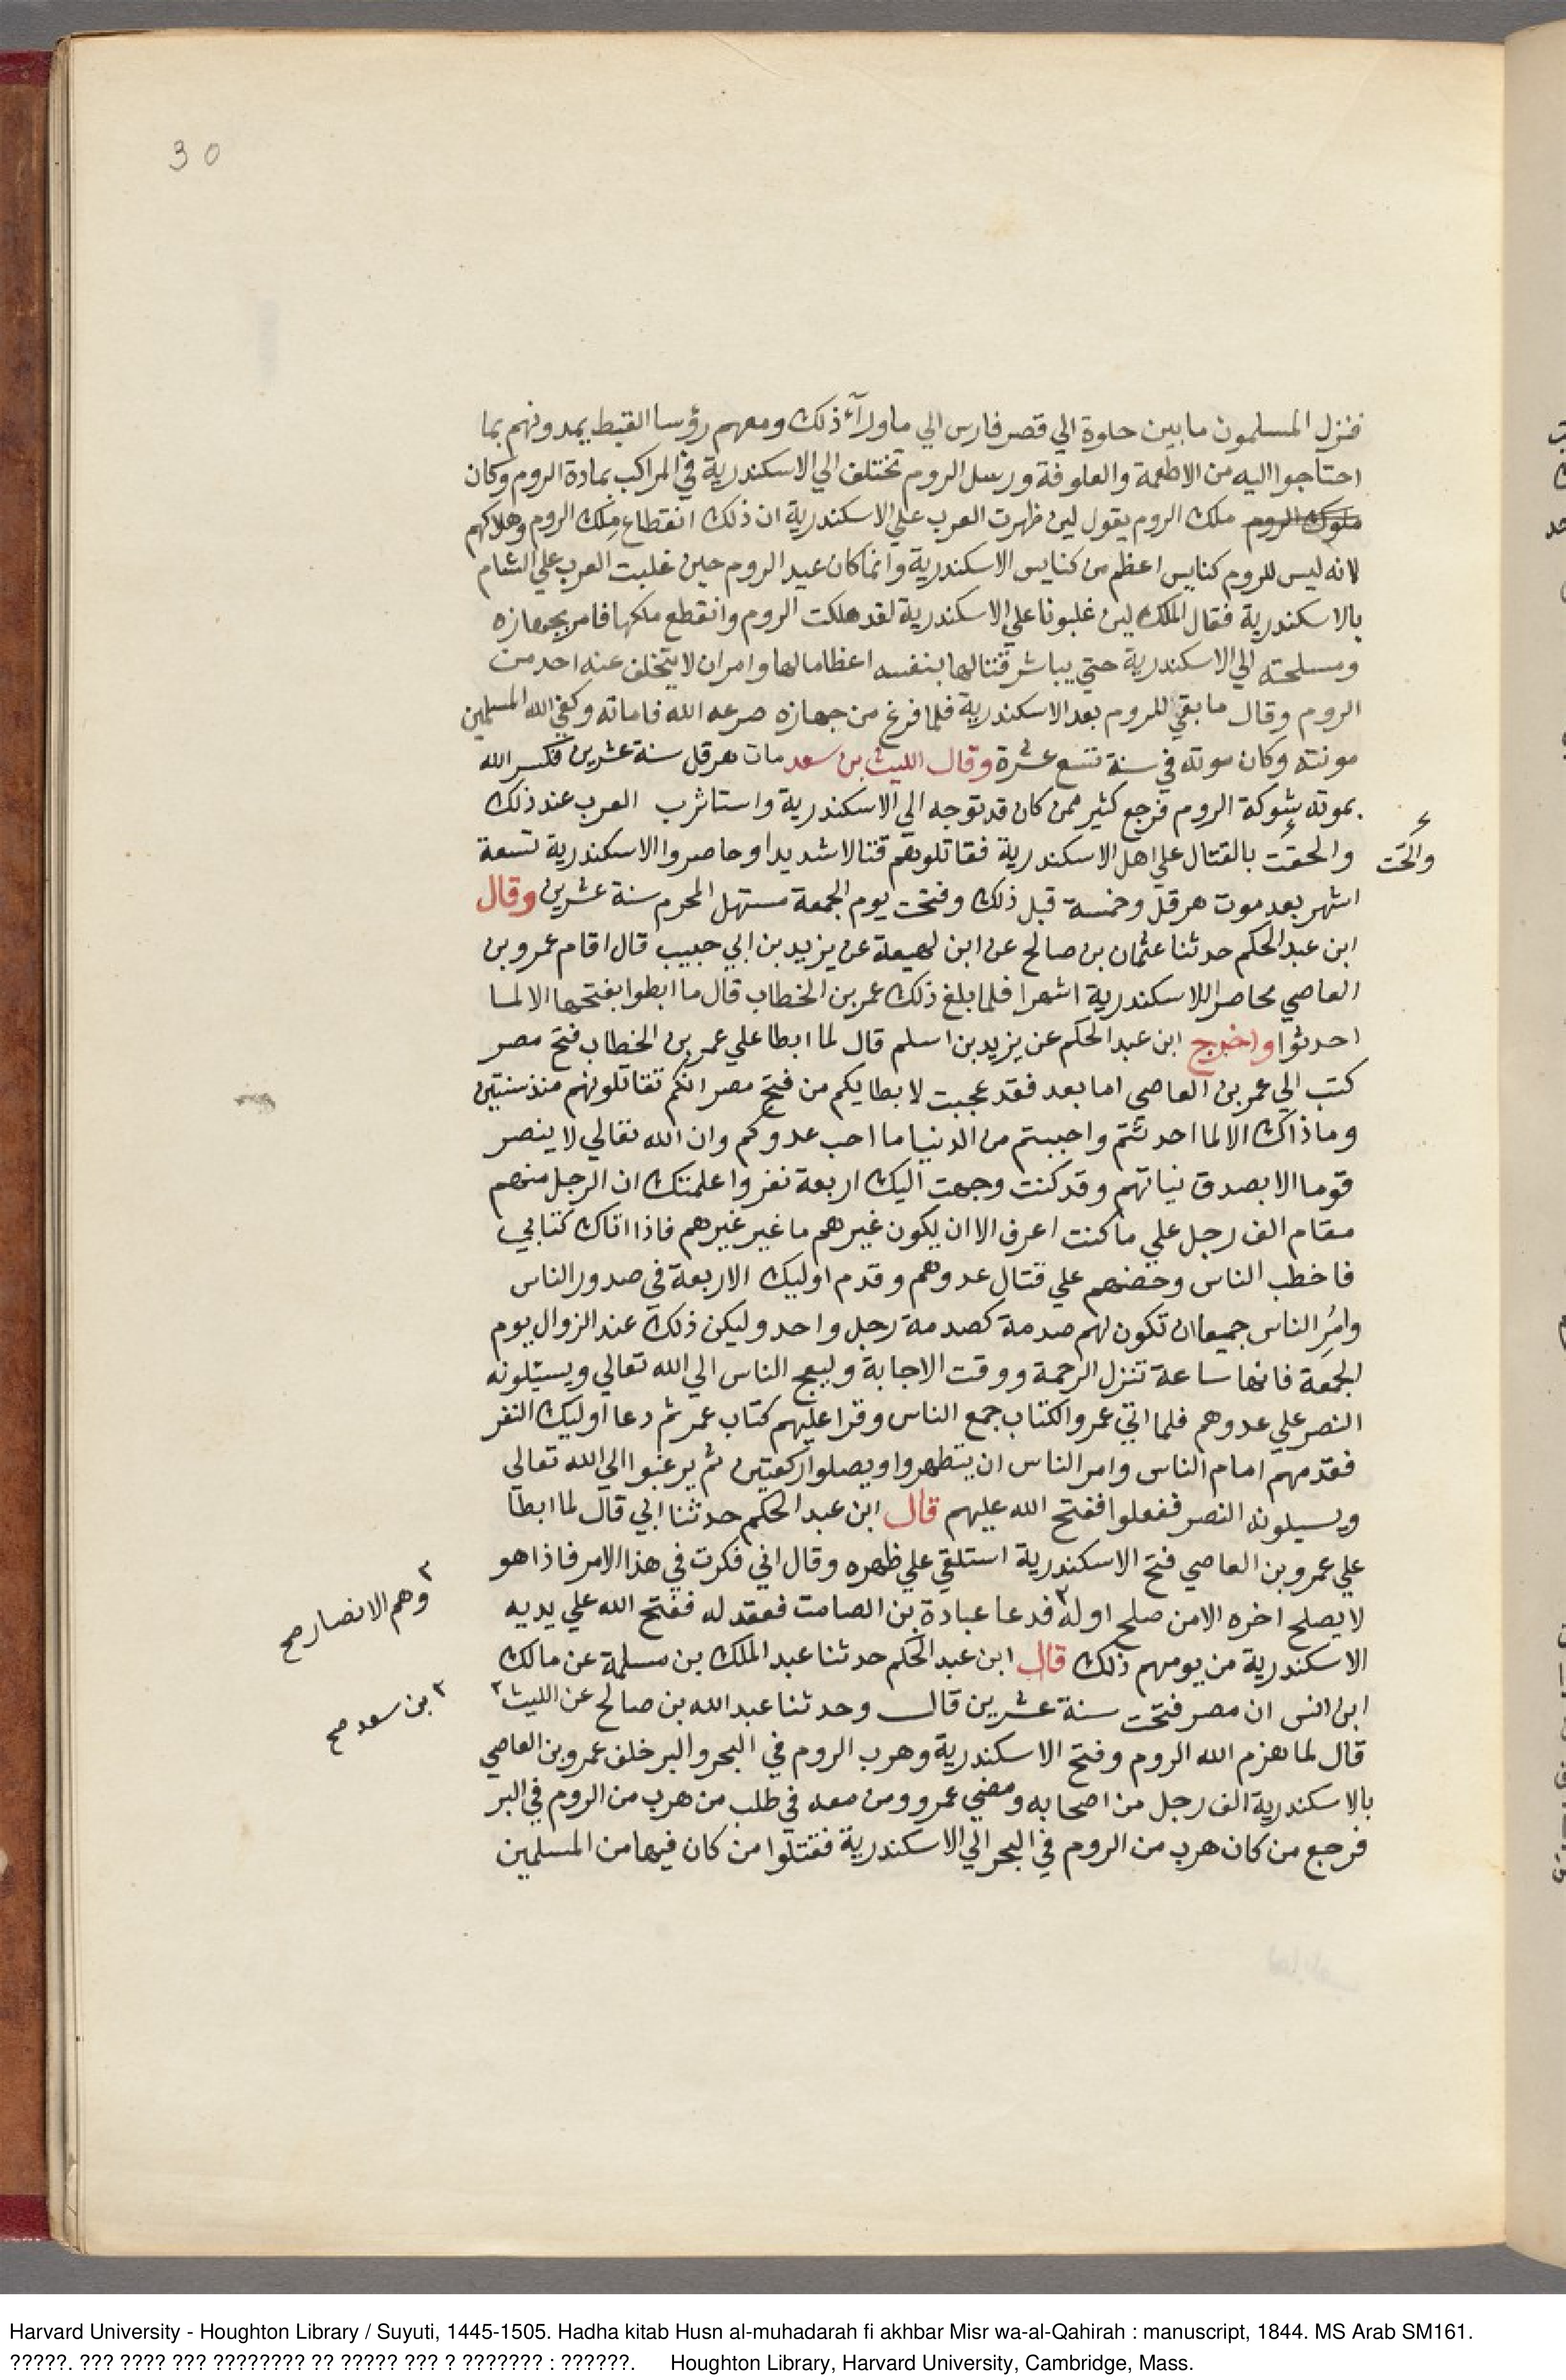 30
فنزل المسلمون ما بين حلوة الي قصر فارس الي ما ورآء ذلك ومعهم رؤسا القبط يمدونهم بما
احتاجوا اليه من الاطعمة والعلوفة ورسل الروم تختلف الي الاسكندرية في المراكب بمادة الروم وكان
ملوك الروم ملك الروم يقول لين ظهرت العرب علي الاسكندرية ان ذلك انقطاع ملك الروم وهلاكهم
لانه ليس للروم كنايس اعظم من كنايس الاسكندرية وانما كان عيد الروم حين غلبت العرب علي الشام
بالاسكندرية فقال الملك لين غلبونا علي الاسكندرية لقد هلكت الروم وانقطع ملكها فامر بجهازه
ومسلحته الي الاسكندرية حتي يباشر قتالها بنفسه اعظاما لها وامر ان لا يتخلف عنه احد من
الروم وقال ما بقي للروم بعد الاسكندرية فلما فرغ من جهازه صرعه الله فاماته وكفي الله المسلمين
مونته وكان موته في سنة تسع عشرة وقال الليث بن سعد مات هرقل سنة عشرين فكسر الله
بموته شوكة الروم فرجع كثير ممن كان قد توجه الي الاسكندرية واستاثرب العرب عند ذلك
والحقت بالقتال علي اهل الاسكندرية فقاتلوهم قتالا شديدا وحاصروا الاسكندرية تسعة
والحت
اشهر بعد موت هرقل وخمسة قبل ذلك وفتحت يوم الجمعة مستهل المحرم سنة عشرين وقال
ابن عبد الحكم حدثنا عثمان بن صالح عن ابن لهيعة عن يزيد بن ابي حبيب قال اقام عمرو بن
العاصي محاصرا للاسكندرية اشهرا فلما بلغ ذلك عمر بن الخطاب قال ما ابطوا بفتحها الا لما
احدثوا واخرج ابن عبد الحكم عن يزيد بن اسلم قال لما ابطا علي عمر بن الخطاب فتح مصر
كتب الي عمر بن العاصي اما بعد فقد عجبت لابطايكم من فتح مصر انكم تقاتلونهم منذ سنتين
وما ذاك الا لما احدثتم واحببتم من الدنيا ما احب عدوكم وان الله تعالي لا ينصر
قوما الا بصدق نياتهم وقد كنت وجهت اليك اربعة نفر واعلمتك ان الرجل منهم
مقام الف رجل علي ما كنت اعرف الا ان يكون غيرهم ما غير غيرهم فاذا اتاك كتابي
فاخطب الناس وحضهم علي قتال عدوهم وقدم اوليك الاربعة في صدور الناس
وامر الناس جميعا ان تكون لهم صدمة كصدمة رجل واحد وليكن ذلك عند الزوال يوم
الجمعة فانها ساعة تنزل الرحمة ووقت الاجابة وليعج الناس الي الله تعالي ويسئلونه
النصر علي عدوهم فلما اتي عمرو الكتاب جمع الناس وقرا عليهم كتاب عمر ثم دعا اوليك النفر
فقدمهم امام الناس وامر الناس ان يتطهروا ويصلوا ركعتين ثم يرغبوا الي الله تعالي
ويسيلونه النصر ففعلوا ففتح الله عليهم قال ابن عبد الحكم حدثنا ابي قال لما ابطا
علي عمرو بن العاصي فتح الاسكندرية استلقي علي ظهره وقال اني فكرت في هذا الامر فاذا هو
لا يصلح اخره الا من صلح اوله ٢ فدعا عبادة بن الصامت فعقد له ففتح الله علي يديه
٢ وهم الانصار صح
الاسكندرية من يومهم ذلك قال ابن عبد الحكم حدثنا عبد الملك بن مسلمة عن مالك
ابن انس ان مصر فتحت سنة عشرين قال وحدثنا عبد الله بن صالح عن الليث ٢
٢ بن سعد صح
قال لما هزم الله الروم وفتح الاسكندرية وهرب الروم في البحر والبر خلف عمرو بن العاصي
بالاسكندرية الف رجل من اصحابه ومضي عمرو ومن معه في طلب من هرب من الروم في البر
فرجع من كان هرب من الروم في البحر الي الاسكندرية فقتلوا من كان فيها من المسلمين
Harvard University - Houghton Library / Suyuti, 1445-1505. Hadha kitab Husn al-muhadarah fi akhbar Misr wa-al-Qahirah : manuscript, 1844. MS Arab SM161.
?????. ??? ???? ??? ???????? ?? ????? ??? ? ??????? : ??????. Houghton Library, Harvard University, Cambridge, Mass.